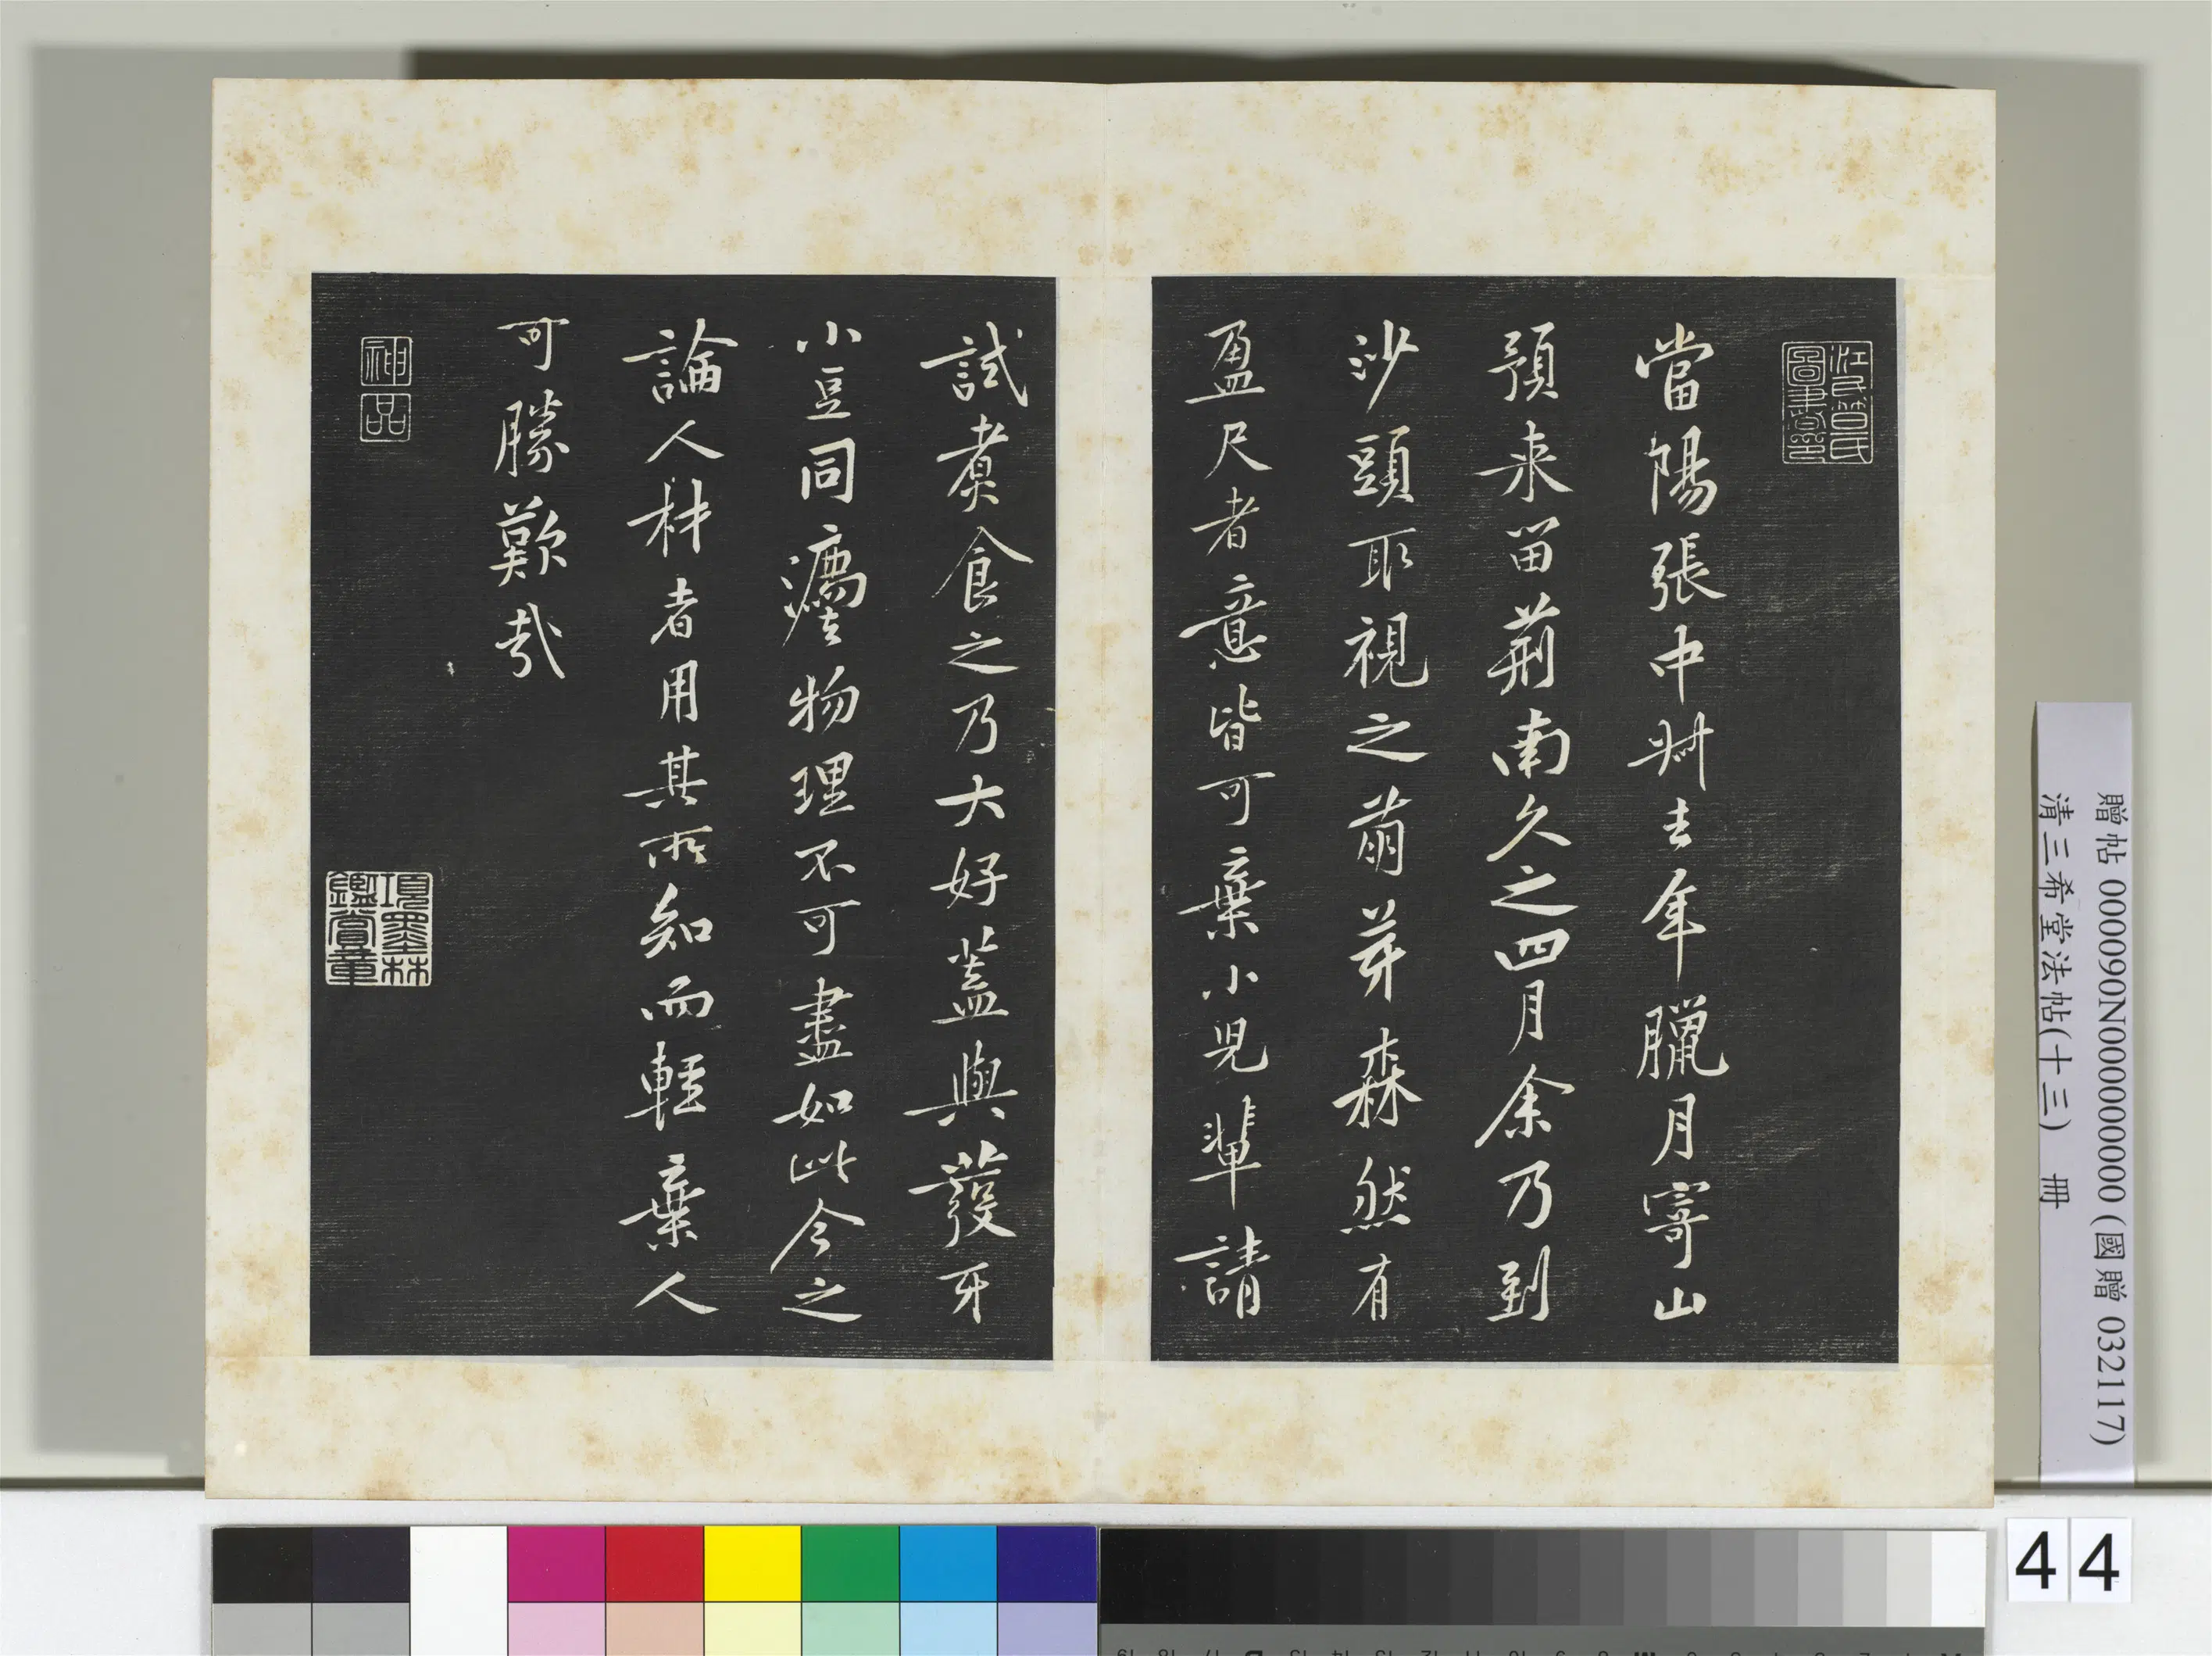 當陽張中叔去年臘月寄山
預来留荊南久之四月余乃到
沙頭取視之萌芽森然有
盈尺者意皆可棄小兒輩請
試煮食之乃大好蓋與發牙
小豆同灋物理不可盡如此今之
論人材者用其所知而輕棄人
可勝歎哉
神品
項墨林鑑賞章
贈帖 000090N000000000 (國贈 032117)
清三希堂法帖(十三) 冊
44